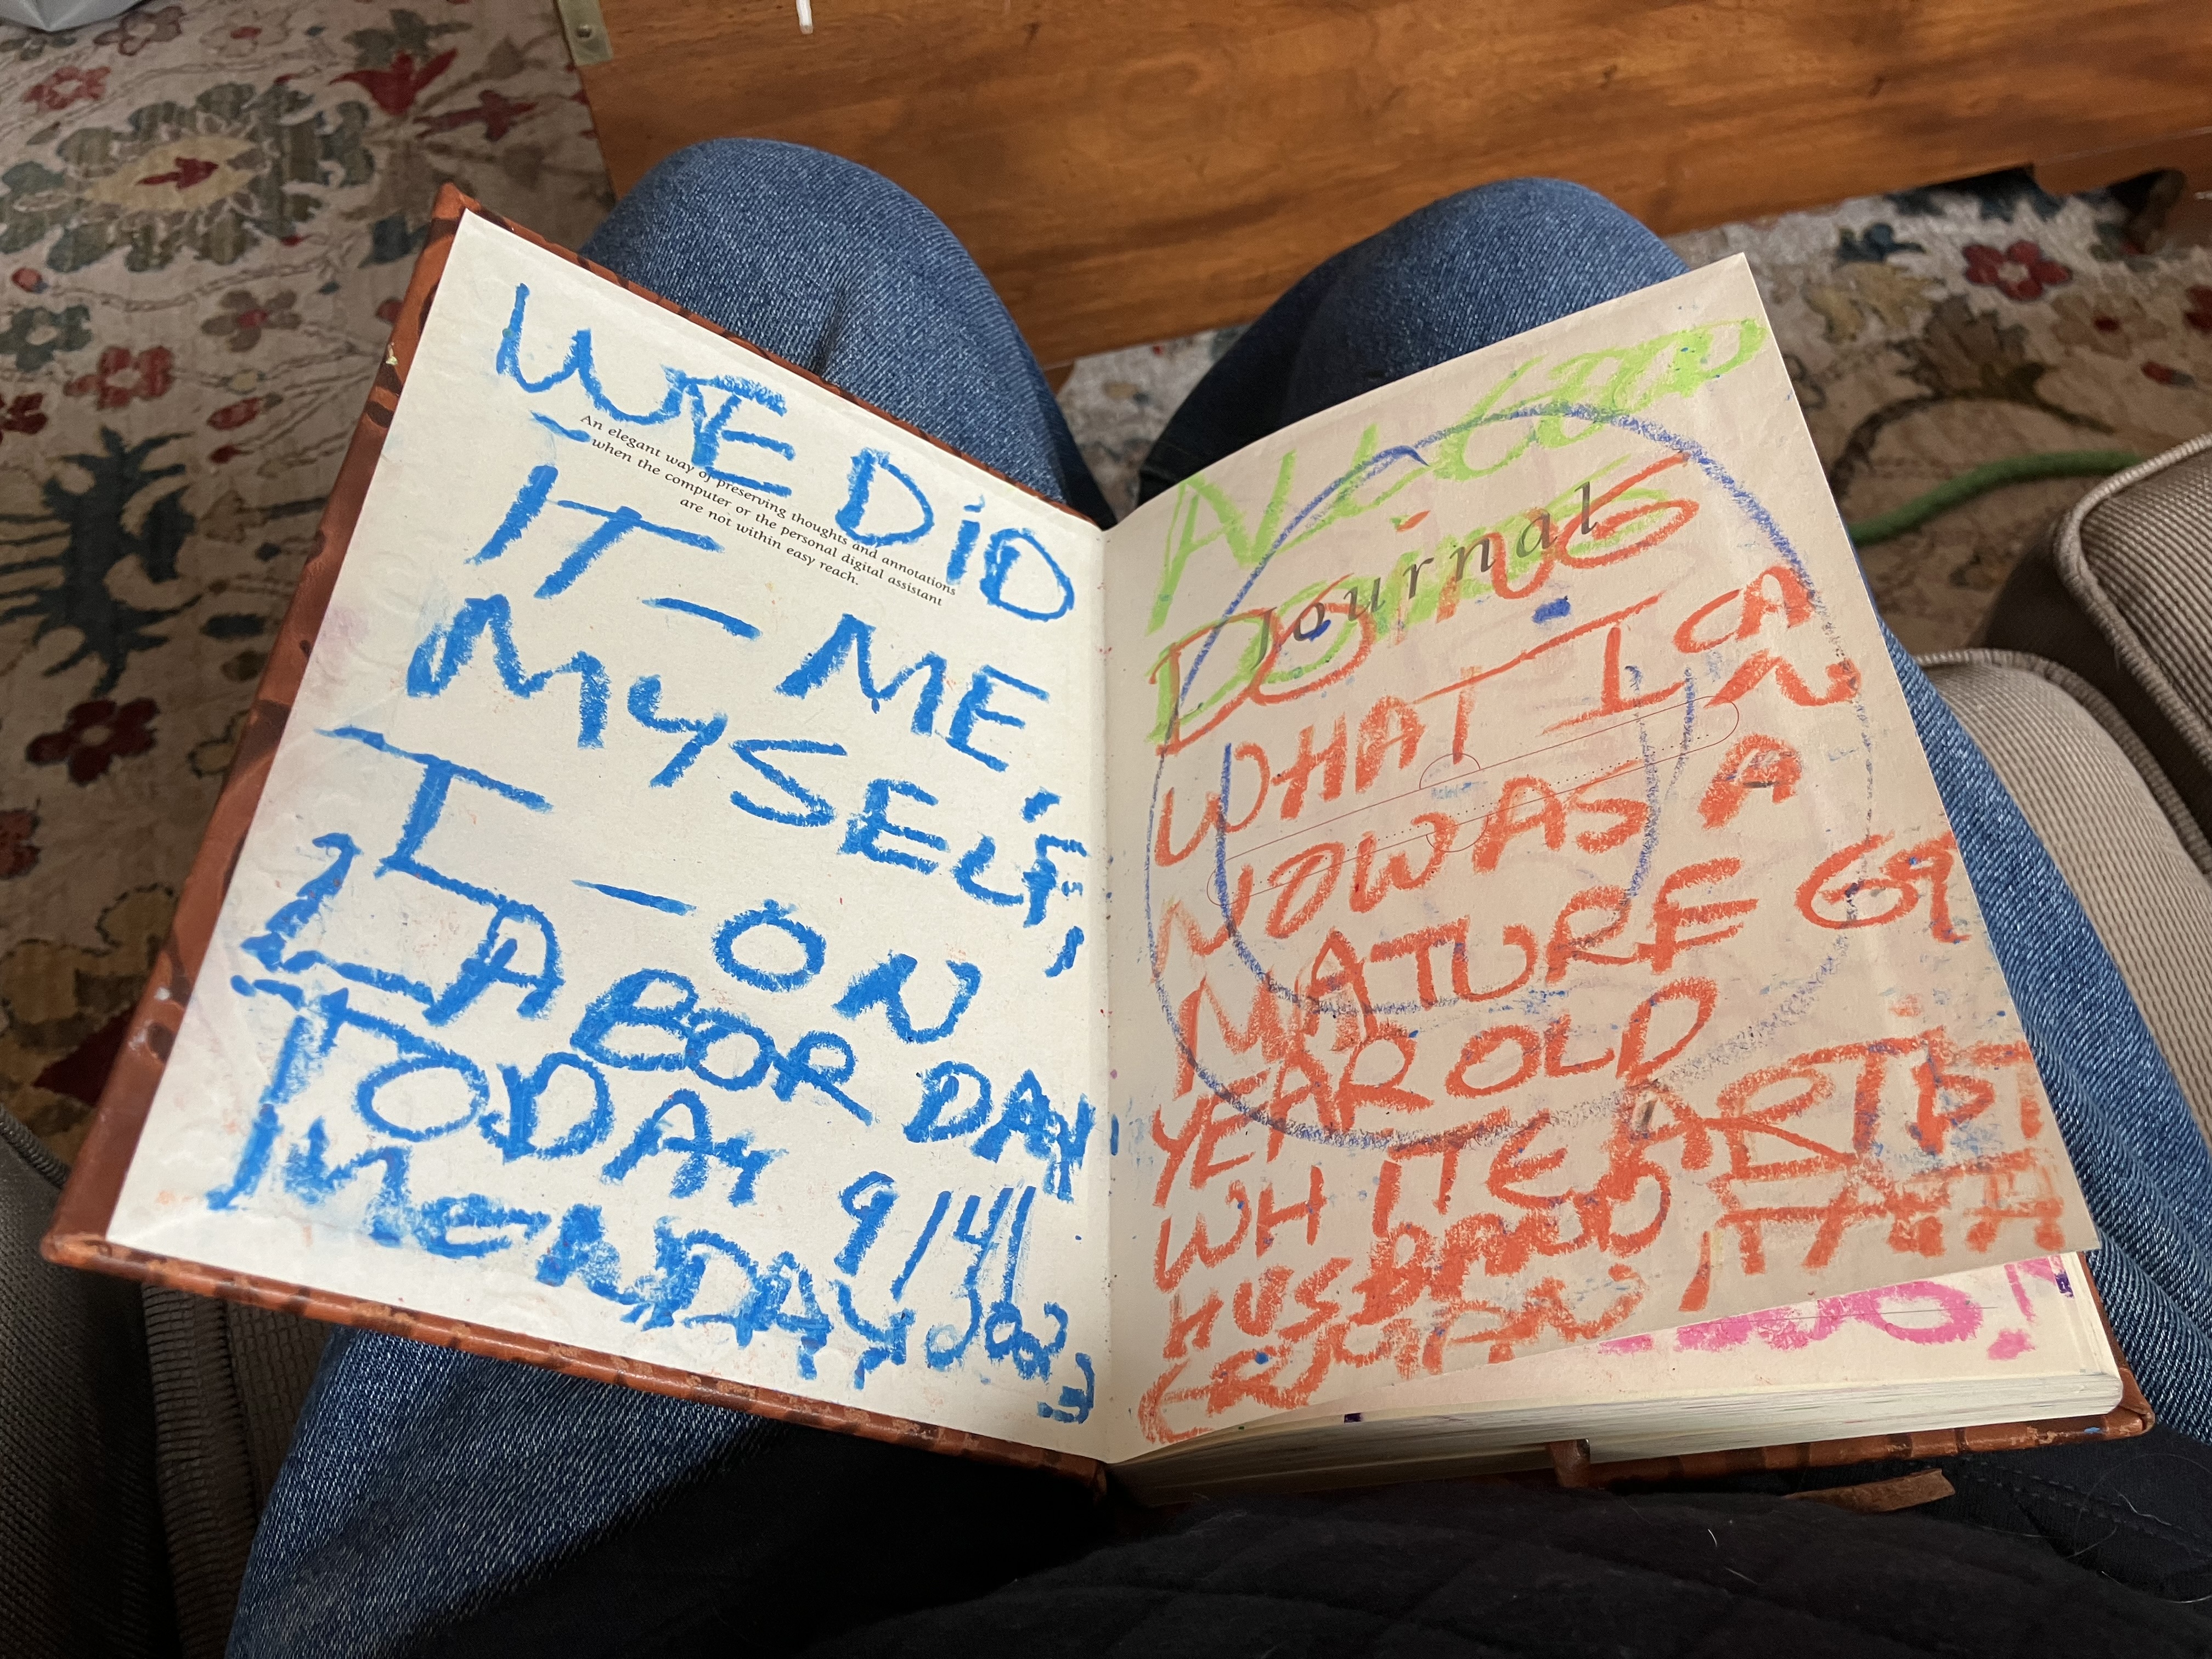 WE DiD
An elegant way of preserving thoughts and annotations
when the computer or the personal digital assistant
are not within easy reach.
IT - ME,
MYSELF,
I - ON
LABOR DAY
TODAY 9/4/
MONDAY 2023
ALL GOOD
Journal
DOiNG
WHAT I CAN
NOW AS A
MATURE 69
YEAR OLD
WHITE ARTIST
HUSBAND